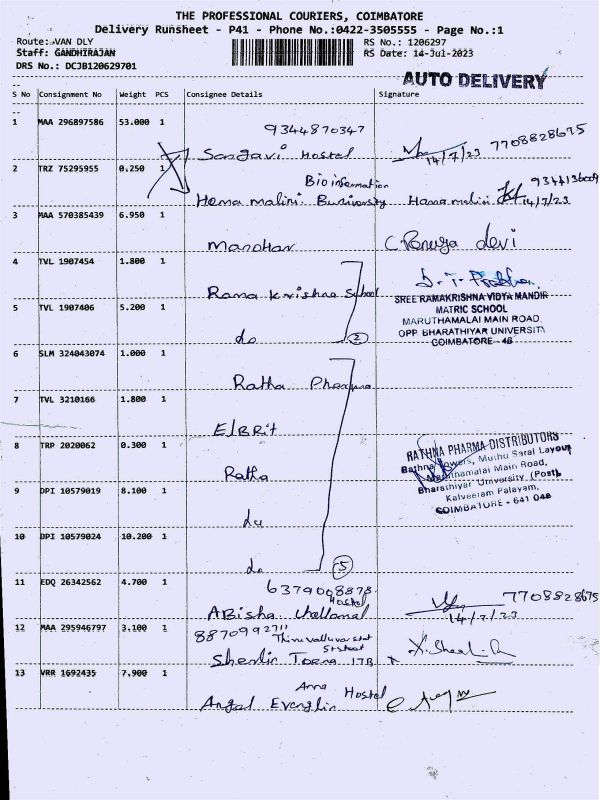 THE PROFESSIONAL COURIERS, COIMBATORE
Delivery Runsheet - P41 - Phone No.:0422-3505555 - Page No.:1
Route: VAN DLY RS No.: 1206297
Staff: GANDHIRAJAN RS Date: 14-Jul-2023
DRS No.: DCJB120629701
AUTO DELIVERY
S No Consignment No Weight PCS Consignee Details Signature
9344870347
1 MAA 296897586 53.000 1 Sangavi Hostel 14/7/23 7708828675
Bioinformation
2 TRZ 75295955 0.250 1 Hema malini Hema malini 14/7/23
3 MAA 570385439 6.950 1 Manohar devi
4 TVL 1907454 1.800 1 Rama Krishna School
SREE RAMAKRISHNA VIDYA MANDIR
MATRIC SCHOOL
MARUTHAMALAI MAIN ROAD,
OPP BHARATHIYAR UNIVERSITI
COIMBATORE - 46
5 TVL 1907406 5.200 1 do 2
6 SLM 324043074 1.000 1 Ratha Pharma
7 TVL 3210166 1.800 1 ElBRit
8 TRP 2020062 0.300 1 Ratha
RATHNA PHARMA DISTRIBUTORS
Rathna Towers, Muthu Saral Layout
Maruthamalai Main Road,
Bharathiyar University (Post),
Kalveeram Palayam,
COIMBATORE - 641 046
9 DPI 10579019 8.100 1 do
10 DPI 10579024 10.200 1 do 5
6379008878
Hostel
11 EDQ 26342562 4.700 1 ABisha 14/7/23 7708828675
8870992711
12 MAA 295946797 3.100 1 Sherlin 17B
Anna Hostel
13 VRR 1692435 7.900 1 Angel Evanglin